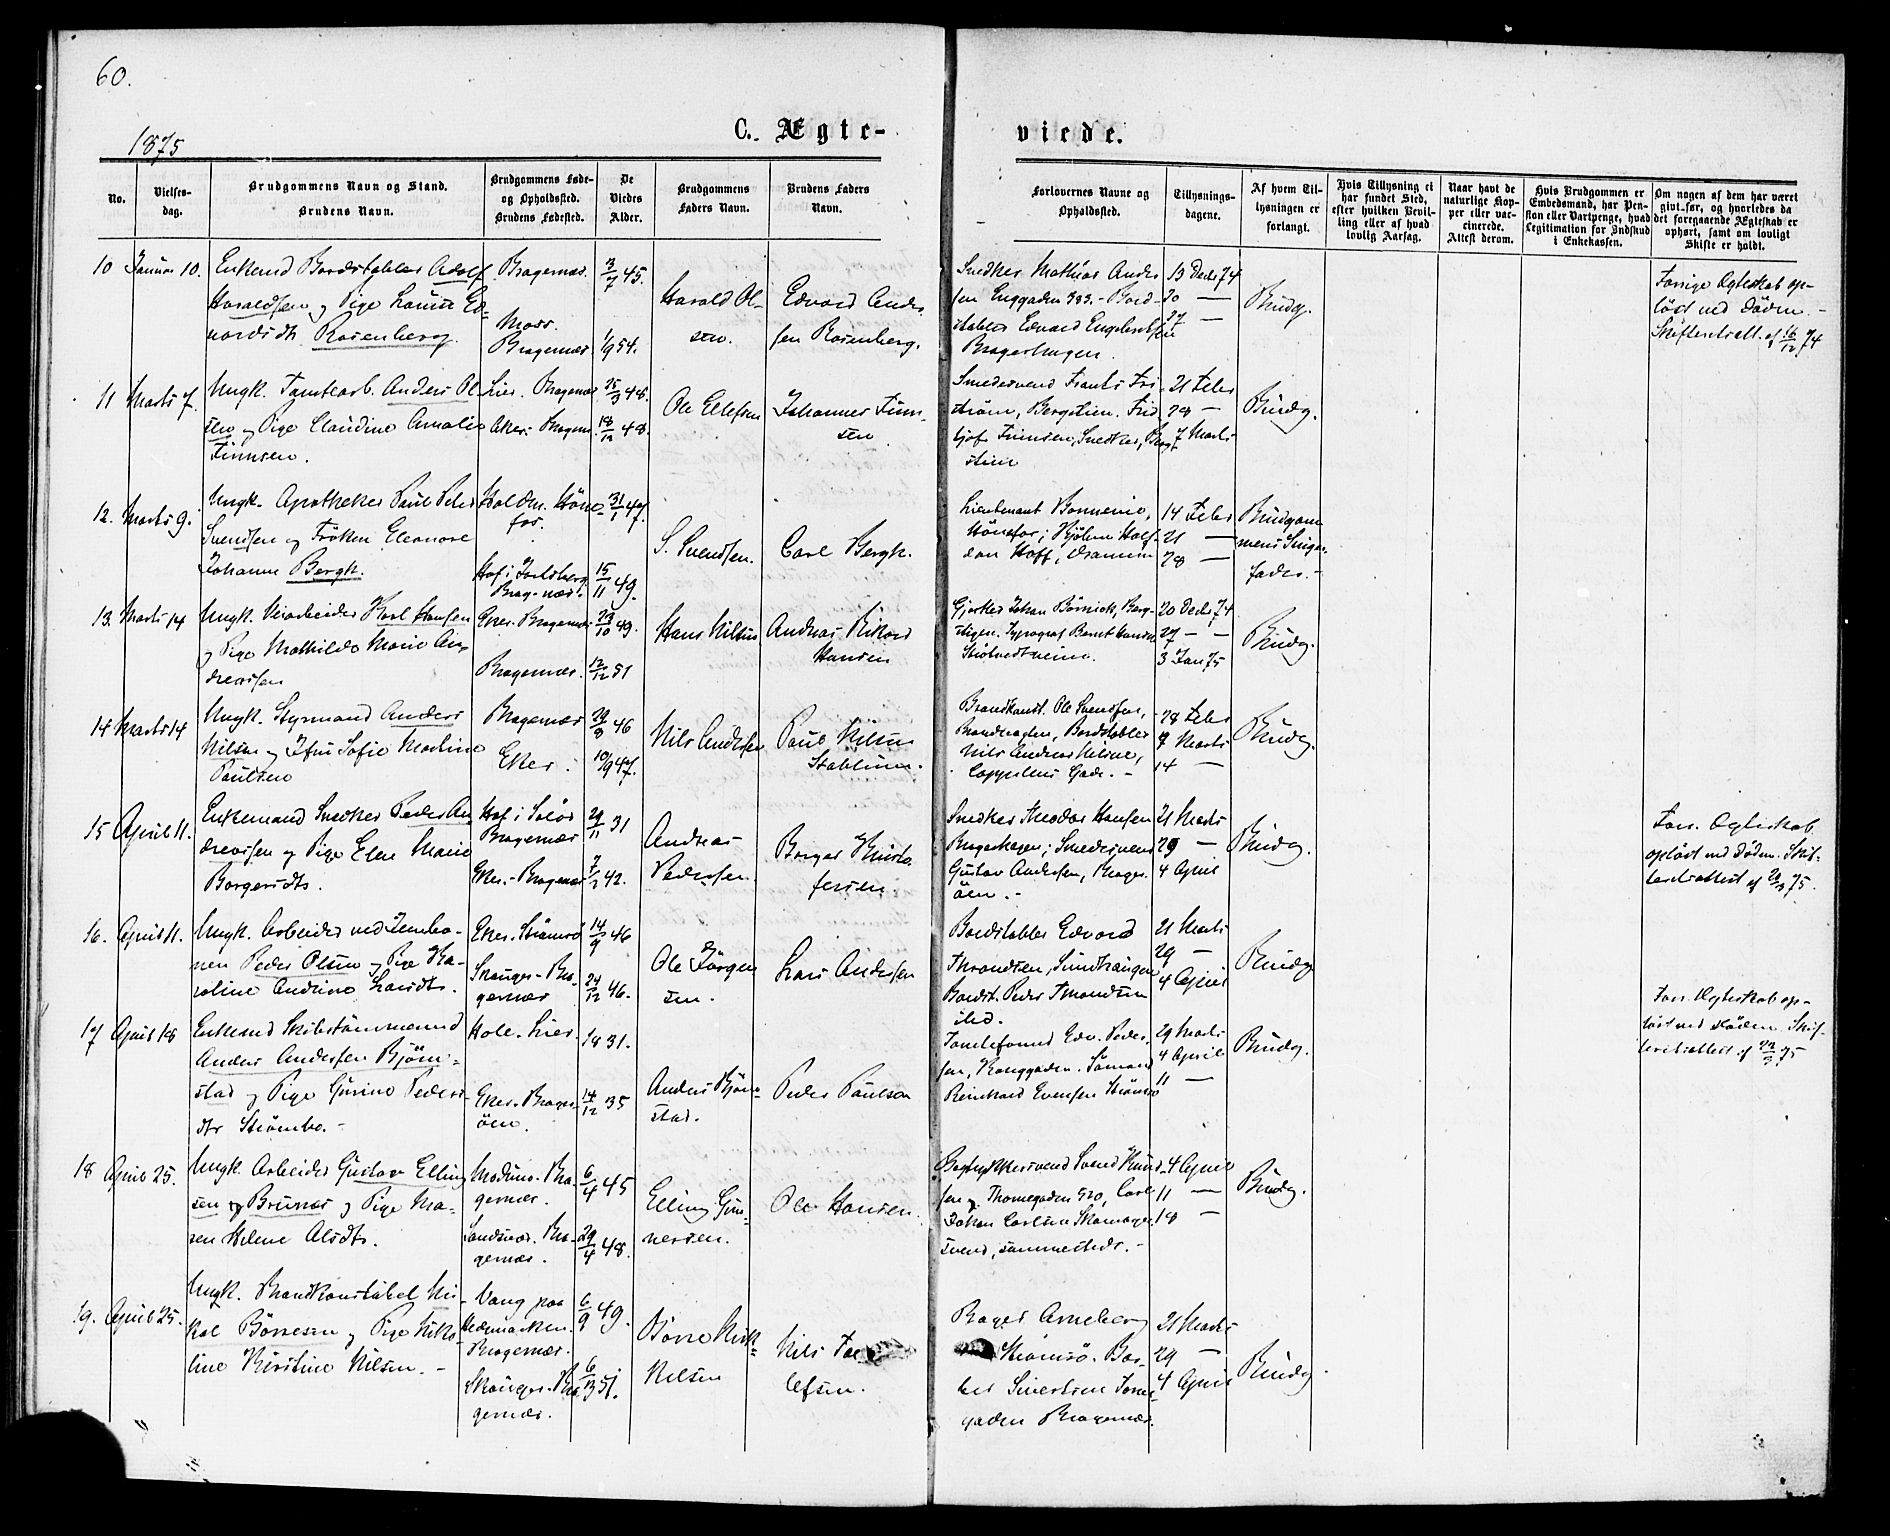 60.
1875
C. Ægte-
viede.
No.
Vielses-
dag.
Brudgommens Navn og Stand.
Brudens Navn.
Brudgommens Føde-
og Opholdssted.
Brudens Fødested.
De
Viedes
Alder.
Brudgommens
Faders Navn.
Brudens Faders
Navn.
Forlovernes Navne og
Opholdssted.
Tillysnings-
dagene.
Af hvem Til-
lysningen er
forlangt.
Hvis Tillysning ei
har fundet Sted,
efter hvilken Bevil-
ling eller af hvad
lovlig Aarsag.
Naar havt de
naturlige Kop-
per eller vac-
cinerede.
Attest derom.
Hvis Brudgommen er
Embedsmand, har Pen-
sion eller Vartpenge, hvad
Legitimation for Indskud
i Enkekassen.
Om nogen af dem har været
gift før, og hvorledes da
det foregaaende Ægteskab er
ophørt, samt om lovligt
Skifte er holdt.
10 Januar 10.
Enkemd Bordstabler Adolf
Haraldsen og Pige Laurra Ed-
vardsdtr Rosenberg.
Bragernæs.
Moss.
Bragernæs
3/7 45.
1/9 54.
Harald Ol-
sen.
Edvard Ander
sen Rosenberg.
Snedker Mathias Ander
sen Enggaden 383. - Bord-
stabler Edvard Engebretsen
Bragerhagen.
13 Decbr 74
20 —
27 —
Brudg.
Forrige Ægteskab op-
løst ved Døden. -
Skifteretsatt. af 16/12 74
11 Marts 7.
Ungk. Tomtearb. Anders Ol-
sen og Pige Claudine Amalie
Finnsen.
Lier. Bragernæs
Eker. Bragern.
25/3 48.
18/12 48.
Ole Ellefsen
Johannes Finn-
sen
Smedesvend Frants Fri-
strøm, Bergstien. Frid-
tjof Finnsen, Snedker, Berg
stien
21 Febr
28 —
7 Marts
Brudg.
12. Marts 9.
Ungk. Apotheker Paul Peter
Svendsen og Frøken Eleonore
Johanne Bergh.
Halden. Høne-
fos.
Hof i Jarlsberg
Bragernæs.
31/1 47.
15/11 49.
S. Svendsen.
Carl Bergh.
Lieutenant Bonnevie,
Hønefos; Hjalmar Half-
dan Hoff, Drammen
14 Febr
21 —
28 —
Brudgom
mens Sviger-
fader. -
13. Marts 14
Ungk. Karl Hansen
og Pige Mathilde Marie An-
dreassen
Eker. Bragernæs
Bragernæs.
23/10 49.
12/12 51
Hans Nilsen
Andreas Rikard
Hansen
Gjørtler Johan Børnick, Berg-
stigen. Typograf Bernt Hansen
20 Decbr 74
27 — —
3 Jan 75
Brudg.
14 Marts 14
Ungk. Styrmand Anders
Nilsen og Jfru Sofie Martine
Paulsen
Bragernæs
Eker.
29/3 46
10/9 47.
Nils Andersen
Paul Nilsen
Stablum.
Brandkonst. Ole Svendsen,
Brandvagten, Bordstabler
Nils Andreas Nilsen,
Cappelens Gade. -
28 Febr
7 Marts
14 —
Brudg.
15 April 11.
Enkemand Snedker Peder An-
dreassen og Pige Elen Marie
Borgersdtr.
Hof i Solør
Bragernæs
Eker. - Bragernæs
29/11 31
7/2 42.
Andreas
Pedersen.
Borger Christo
fersen
Snedker Theodor Hansen
Bragerhagen; Smedesvend
Gustav Andersen, Brager-
øen. -
21 Marts
29 —
4 April
Brudg.
Forr. Ægteskab
opløst ved Døden. Skif-
teretsattest af 20/3 75.
16. April 11.
Ungk. Arbeider ved Jernba-
nen Peder Olsen og Pige Ka-
roline Andrine Larsdtr.
Eker. Strømsø
Skauger - Bra-
gernæs
14/9 46
24/12 46.
Ole Jørgen
sen.
Lars Andersen
Bordstabler Edvard
Throndsen, Sundhaugen
Bordst. Peder Throndsen
ibd.
21 Marts
29 —
4 April
Brudg
17 April 18
Enkemd Skibstømmermand
Anders Andersen Bjørn-
stad og Pige Gurine Peders-
dtr Strømbo. -
Hole. Lier.
Eker. Brager-
øen.
1831.
14/12 35
Anders Bjørn-
stad.
Peder Paulsen
Tomteformd Edv. Peder-
sen, Konggaden. Sømand
Reinhard Evensen Strømsø
29 Marts
4 April
11 —
Brudg.
Forr. Ægteskab op-
løst ved Døden. Skif-
teretsattest af 22/3 75
18 April 25.
Ungk. Arbeider Gustav Elling-
sen Brunæs og Pige Ma-
ren Helene Olsdtr.
Modum. Bra-
gernæs.
Sandsvær. Bra-
gernæs.
6/4 45
29/4 48.
Elling Gun-
nersen.
Ole Hansen.
Bogtrykkersvend Svend Knud-
sen, Thornegaden 520, Carl
Johan Carlsen Skomager-
svend, sammesteds. -
4 April
11 —
18 —
Brudg.
19. April 25.
Ungk. Brandkonstabel Ni-
kol Børresen og Pige Niko-
line Kirstine Nilsen. -
Vang paa
Hedemarken.
Bragernæs.
Skauger. Bra-
gernæs.
6/9 49.
6/3 51.
Børre
Nilsen
Nils
lefsen.
Roger Arneberg
Strømsø. Bar-
ber Sivertsen Torve-
gaden Bragernæs.
21 Marts
29 —
4 April
Brudg